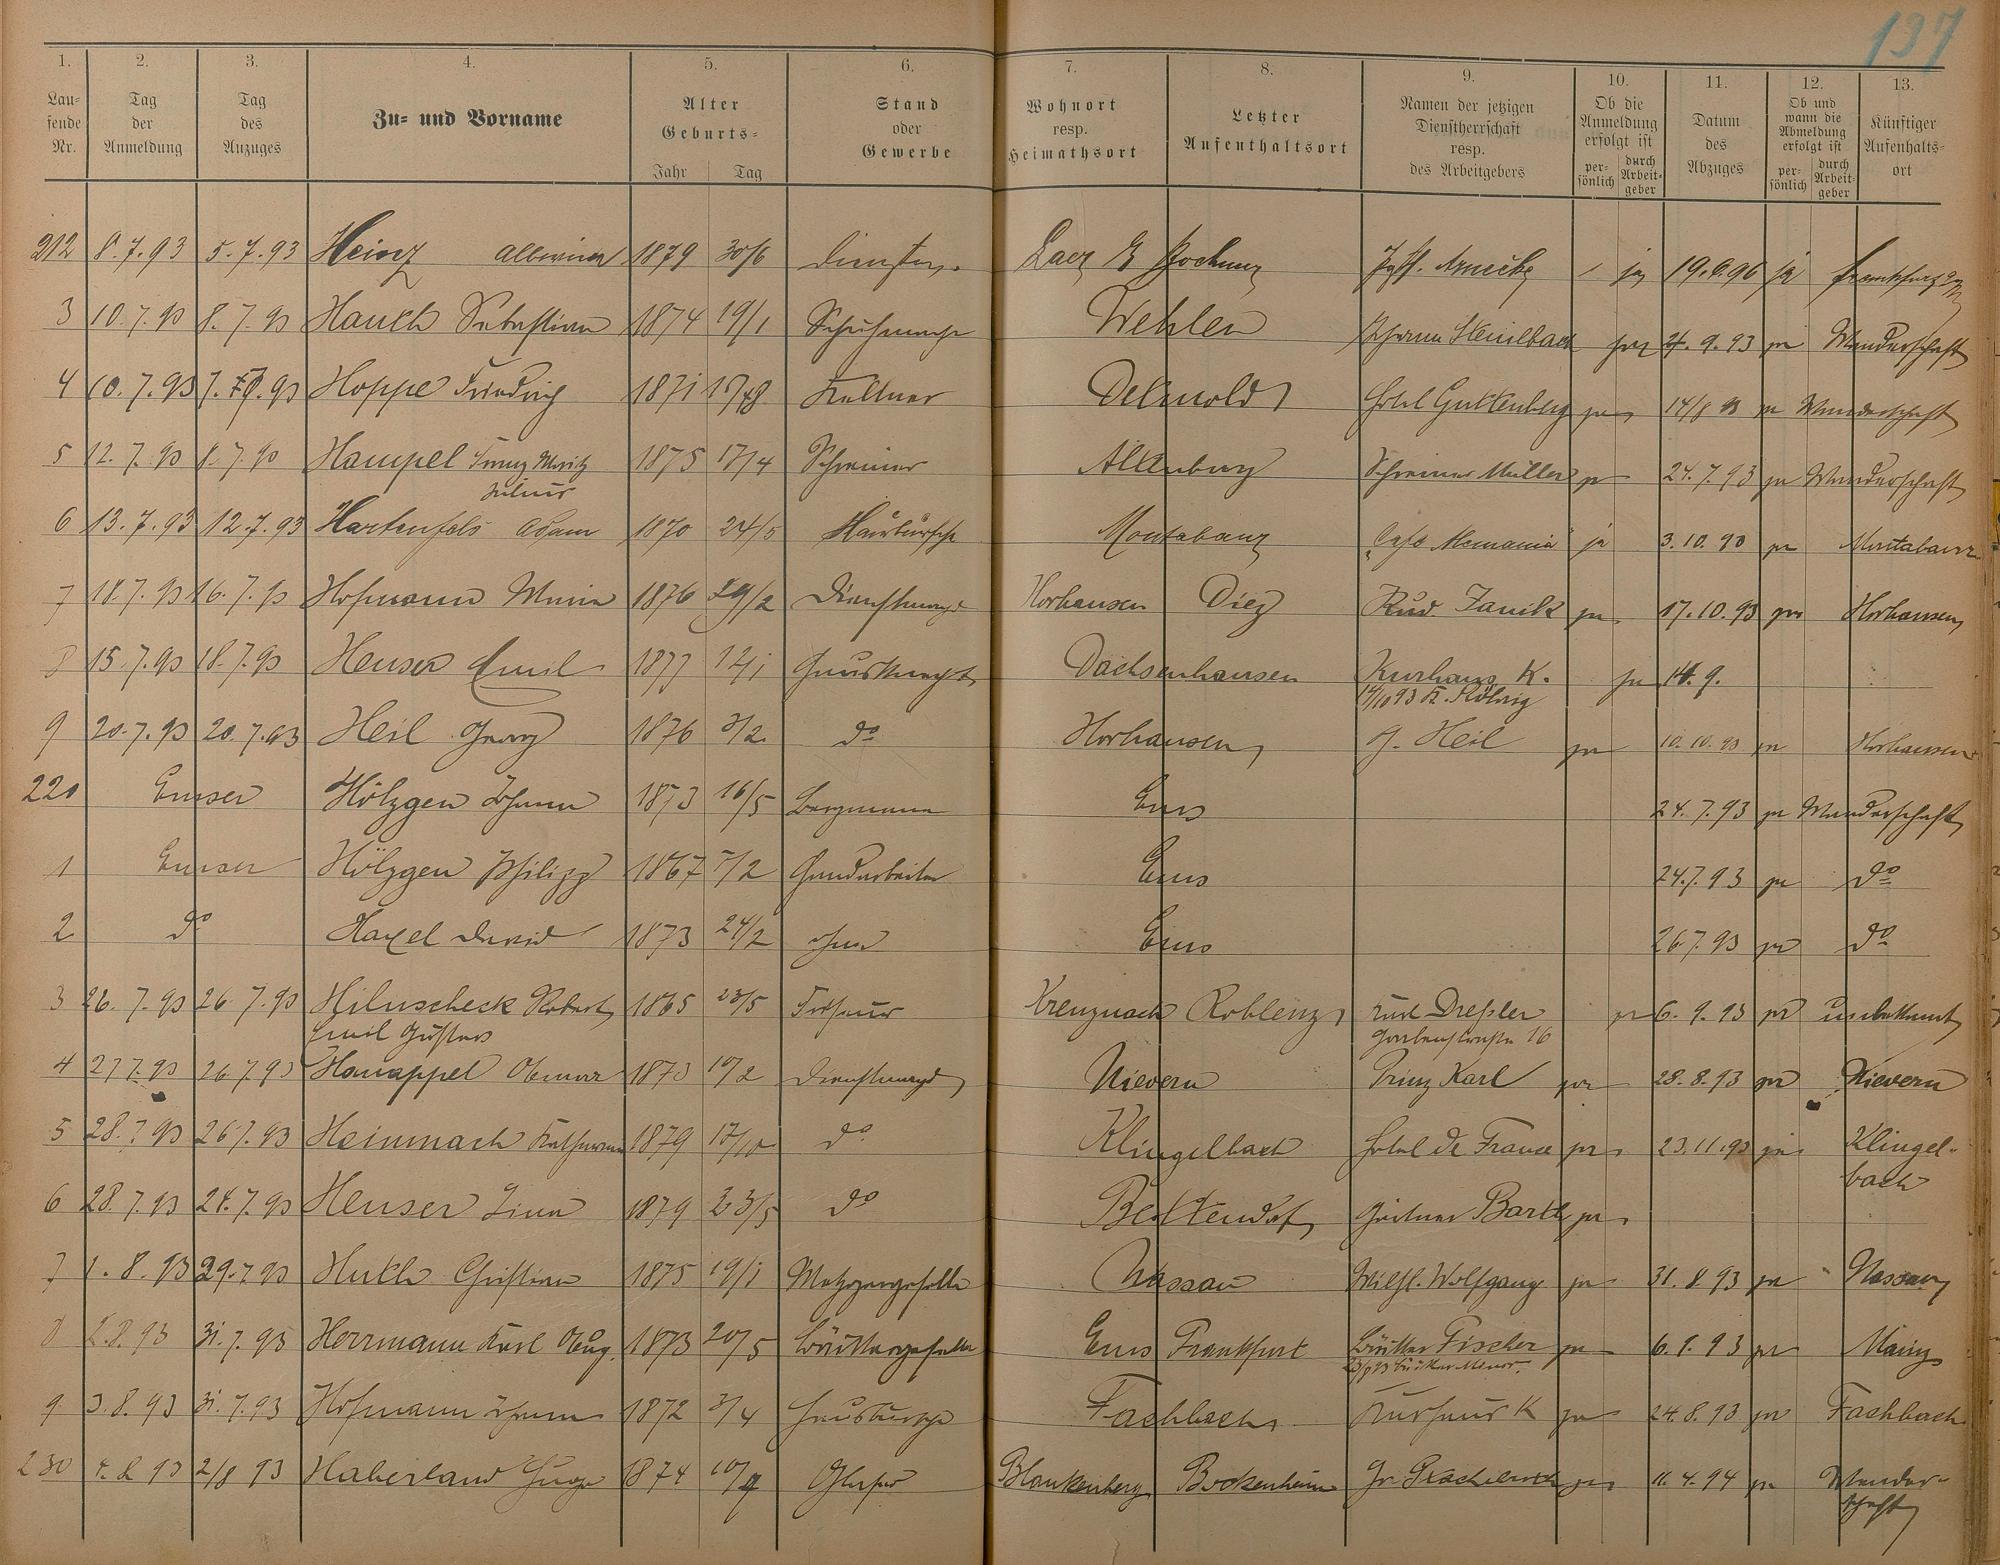 137
1. 2. 3. 4. 5. 6. 7. 8. 9. 10. 11. 12. 13.
Lau-
fende
Nr.
Tag
der
Anmeldung
Tag
des
Anzuges
Zu- und Vorname
Alter
Geburts-
Jahr Tag
Stand
oder
Gewerbe
Wohnort
resp.
Heimathsort
Letzter
Aufenthaltsort
Namen der jetzigen
Dienstherrschaft
resp.
des Arbeitgebers
Ob die
Anmeldung
erfolgt ist
per-
sönlich
durch
Arbeit-
geber
Datum
des
Abzuges
Ob und
wann die
Abmeldung
erfolgt ist
per-
sönlich
durch
Arbeit-
geber
Künftiger
Aufenhalts-
ort
212 8.7.93 5.7.93 1879 30/6 ja 19.6.96 ja Frankfurt
3 10.7.93 8.7.93 Hauch Sebastian 1874 19/1 Schuhmacher Wehlen 9.93 ja Wanderschaft
4 10.7.93 Hoppe Friedrich 1871 Kellner Detmold Hotel Guttenberg ja 14/8 93 ja Wanderschaft
5 12.7.93 8.7.93 Hampel Franz Moritz 1875 17/4 Schreiner Altenburg Schreiner Müller ja 24.7.93 ja Wanderschaft
Julius
6 13.7.93 12.7.93 Hartenfels Adam 1870 24/5 Hausbursche Montabaur "Cafe Alemania" ja 3.10.93 ja Montabaur
7 18.7.93 16.7.93 Hofmann Maria 1876 Dienstmagd Horhausen Diez Rud. Janik ja 17.10.93 ja Horhausen
8 15.7.93 18.7.93 Heuser Emil 1877 12/1 Hausknecht Dachsenhausen Kurhaus K. ja 14.9.
9 20.7.93 20.7.93 Heil Georg 1876 3/2 do Horhausen G. Heil ja 10.10.93 ja Horhausen
220 Emser Hölzgen Johann 1873 16/5 Bergmann Ems 24.7.93 ja Wanderschaft
1 Emser Hölzgen Philipp 1867 Handarbeiter Ems 24.7.93 ja do
2 do Haxel David 1873 24/2 ohne Ems 26.7.93 ja do
3 26.7.93 26.7.93 Hiluscheck Robert 1865 23/5 Friseur Kreuznach Koblenz Dreßler ja 6.9.93 ja unbekannt
Emil Gustav Grabenstraße 16
4 27.7.93 26.7.93 Hanappel 1873 10/2 Dienstmagd Nievern Prinz Karl ja 28.8.93 ja Nievern
5 28.7.93 26.7.93 Heinmach Katharina 1879 17/10 do Klingelbach Hotel de France ja 23.11.93 ja Klingel-
bach
6 28.7.93 24.7.93 Heuser Lina 1879 23/5 do Bettendorf Gärtner Barth ja
7 1.8.93 29.7.93 Huth Christian 1875 19/1 Metzgergeselle Nassau Wilh. Wolfgang ja 31.8.93 ja Nassau
8 2.8.93 31.7.93 Herrmann Karl Aug. 1873 20/5 Bäckergeselle Ems Frankfurt Bäcker Fischer ja 6.9.93 ja Mainz
9 3.8.93 31.7.93 Hofmann Johann 1872 3/4 Hausbursche Fachbach Kurhaus K ja 24.8.93 ja Fachbach
230 4.8.93 2/8 93 Haberland Hugo 1874 Glaser Blankenberg Bockenheim ja 11.4.94 ja Wander-
schaft